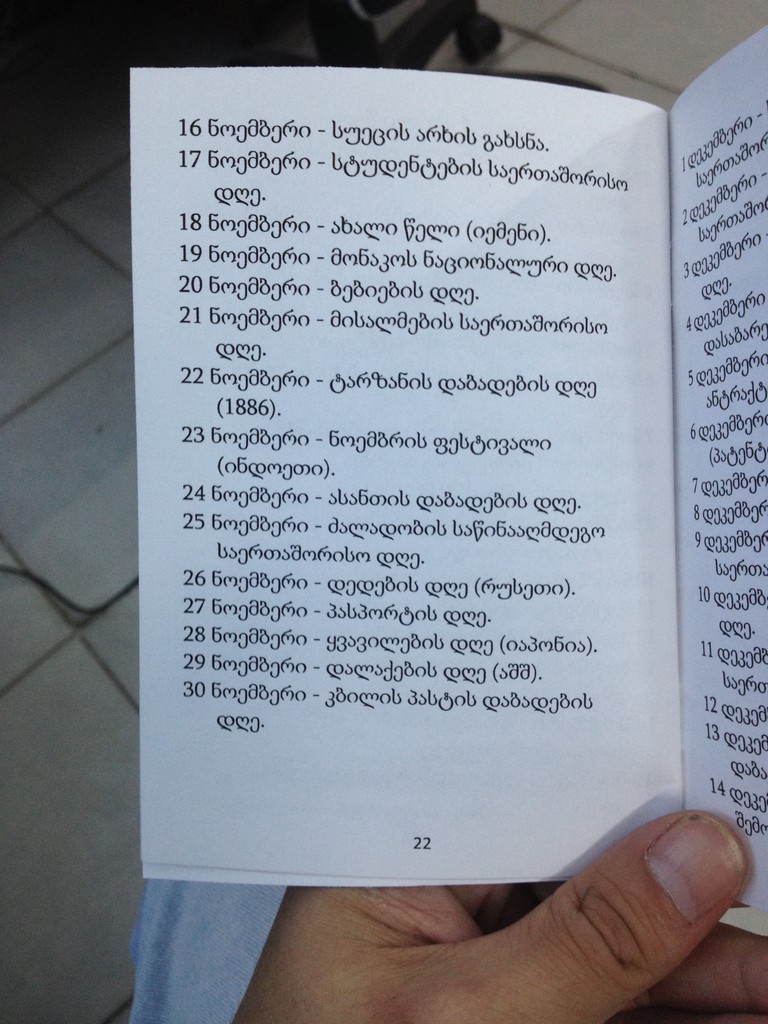 16 ნოემბერი - სუეცის არხის გახსნა.
17 ნოემბერი - სტუდენტების საერთაშორისო
დღე.
18 ნოემბერი - ახალი წელი (იემენი).
19 ნოემბერი - მონაკოს ნაციონალური დღე.
20 ნოემბერი - ბებიების დღე.
21 ნოემბერი - მისალმების საერთაშორისო
დღე.
22 ნოემბერი - ტარზანის დაბადების დღე
(1886).
23 ნოემბერი - ნოემბრის ფესტივალი
(ინდოეთი).
24 ნოემბერი - ასანთის დაბადების დღე.
25 ნოემბერი - ძალადობის საწინააღმდეგო
საერთაშორისო დღე.
26 ნოემბერი - დედების დღე (რუსეთი).
27 ნოემბერი - პასპორტის დღე.
28 ნოემბერი - ყვავილების დღე (იაპონია).
29 ნოემბერი - დალაქების დღე (აშშ).
30 ნოემბერი - კბილის პასტის დაბადების
დღე.
22
1 დეკემბერი -
2 დეკემბერი -
3 დეკემბერი -
დღე.
4 დეკემბერი
5 დეკემბერი
6 დეკემბერ
7 დეკემბერ
8 დეკემბერ
9 დეკემბერ
10 დეკემბ
დღე.
11 დეკემბ
12 დეკემ
13 დეკემ
14 დეკე